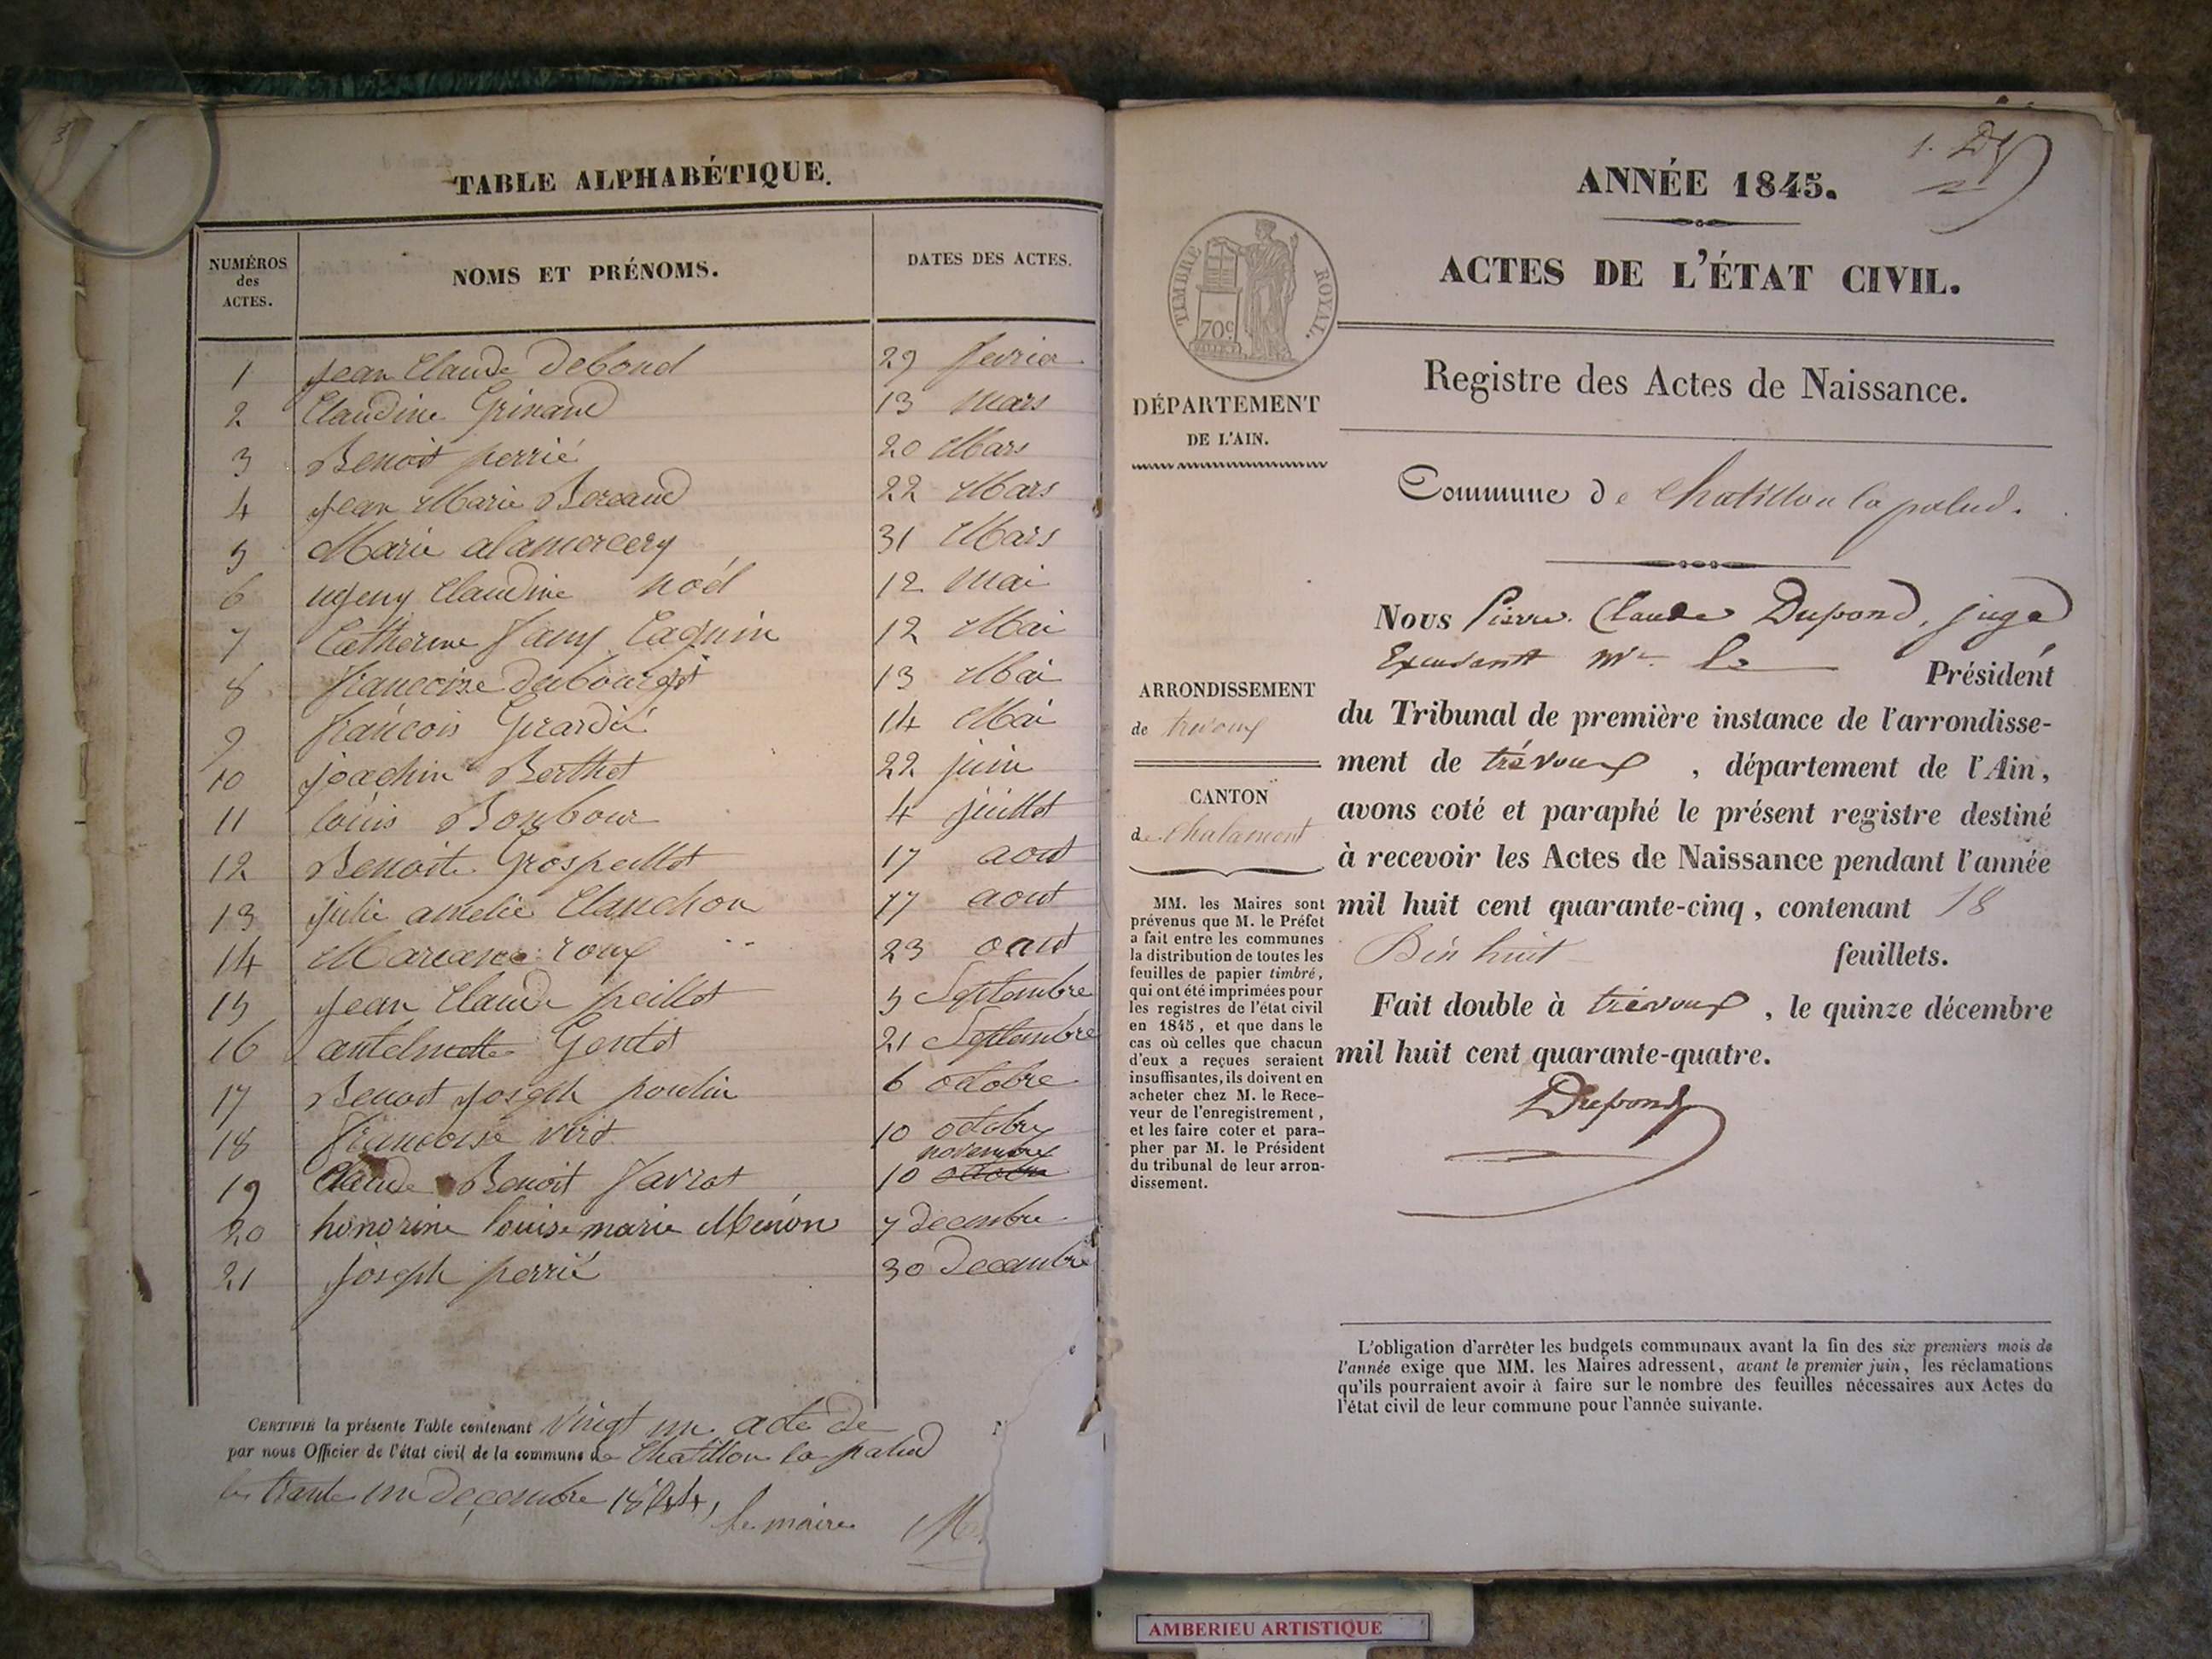 TABLE ALPHABÉTIQUE.
NUMÉROS
des
ACTES.
NOMS ET PRÉNOMS.
DATES DES ACTES.
1 jean Claude Debond 29 fevrier
2 Claudine Grinand 13 mars
3 Benoit perrié 20 Mars
4 jean Marie 22 Mars
5 Marie alamercery 31 Mars
6 Claudine noél 12 mai
7 Catherine fany 12 Mai
8 francoise 13 Mai
9 francois Girardié 14 Mai
10 joachin Berthet 22 juin
11 louis Bonbour 4 juillet
12 Benoite Grospeillet 17 aout
13 julie amelie Clanchon 17 aout
14 Mariane roux 23 aout
15 jean Claude peillot 5 Septembre
16 Gentet 21 Septembre
17 Benoit joseph poulin 6 octobre
18 francoise viret 10 octobre
novembre
19 Claude Benoit favrot 10 octobre
20 honorine louise marie Menon 7 decembre
21 joseph perrié 30 decembre
CERTIFIÉ la présente Table contenant vingt un acte de
par nous Officier de l'état civil de la commune de Chatillon la palud
le trante un decembre 1844,
le maire
ANNÉE 1845.
ACTES DE L'ÉTAT CIVIL.
TIMBRE ROYAL.
70c
Registre des Actes de Naissance.
DÉPARTEMENT
DE L'AIN.
Commune de Chatillon la palud.
Nous Pierre Claude Dupond, juge
Excusant Mr. le Président
ARRONDISSEMENT
de trevoux
du Tribunal de première instance de l'arrondisse-
ment de trévoux, département de l'Ain,
CANTON
de Chalamont
avons coté et paraphé le présent registre destiné
à recevoir les Actes de Naissance pendant l'année
mil huit cent quarante-cinq, contenant 18
Dix huit feuillets.
Fait double à trévoux, le quinze décembre
mil huit cent quarante-quatre.
Dupond
MM. les Maires sont
prévenus que M. le Préfet
a fait entre les communes
la distribution de toutes les
feuilles de papier timbré,
qui ont été imprimées pour
les registres de l'état civil
en 1845, et que dans le
cas où celles que chacun
d'eux a reçues seraient
insuffisantes, ils doivent en
acheter chez M. le Rece-
veur de l'enregistrement,
et les faire coter et para-
pher par M. le Président
du tribunal de leur arron-
dissement.
L'obligation d'arrêter les budgets communaux avant la fin des six premiers mois de
l'année exige que MM. les Maires adressent, avant le premier juin, les réclamations
qu'ils pourraient avoir à faire sur le nombre des feuilles nécessaires aux Actes de
l'état civil de leur commune pour l'année suivante.
AMBERIEU ARTISTIQUE